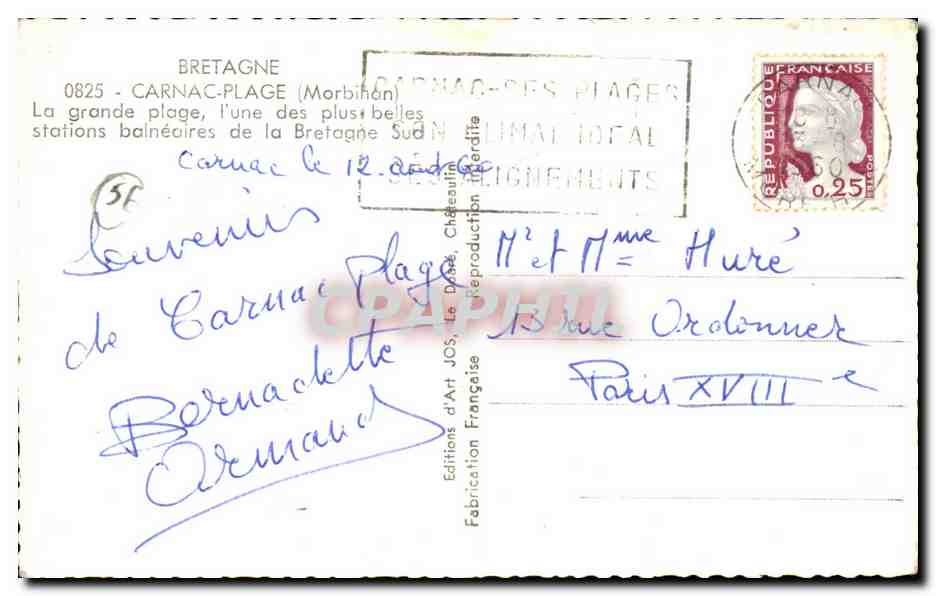 BRETAGNE
0825 - CARNAC-PLAGE (Morbihan)
La grande plage, l'une des plus belles
stations balnéaires de la Bretagne Sud
Carnac le 12 août 60
Souvenirs
de Carnac Plage
Bernadette
Armand
Editions d'Art JOS, Le Doaré, Châteaulin
Fabrication Française Reproduction interdite
CARNAC-SES PLAGES
SON CLIMAT IDEAL
SES ALIGNEMENTS
CARNAC
60
REPUBLIQUE FRANÇAISE
POSTES
0,25
Mr et Mme Huré
13 rue Ordonner
Paris XVIIIe
CPAPHIL